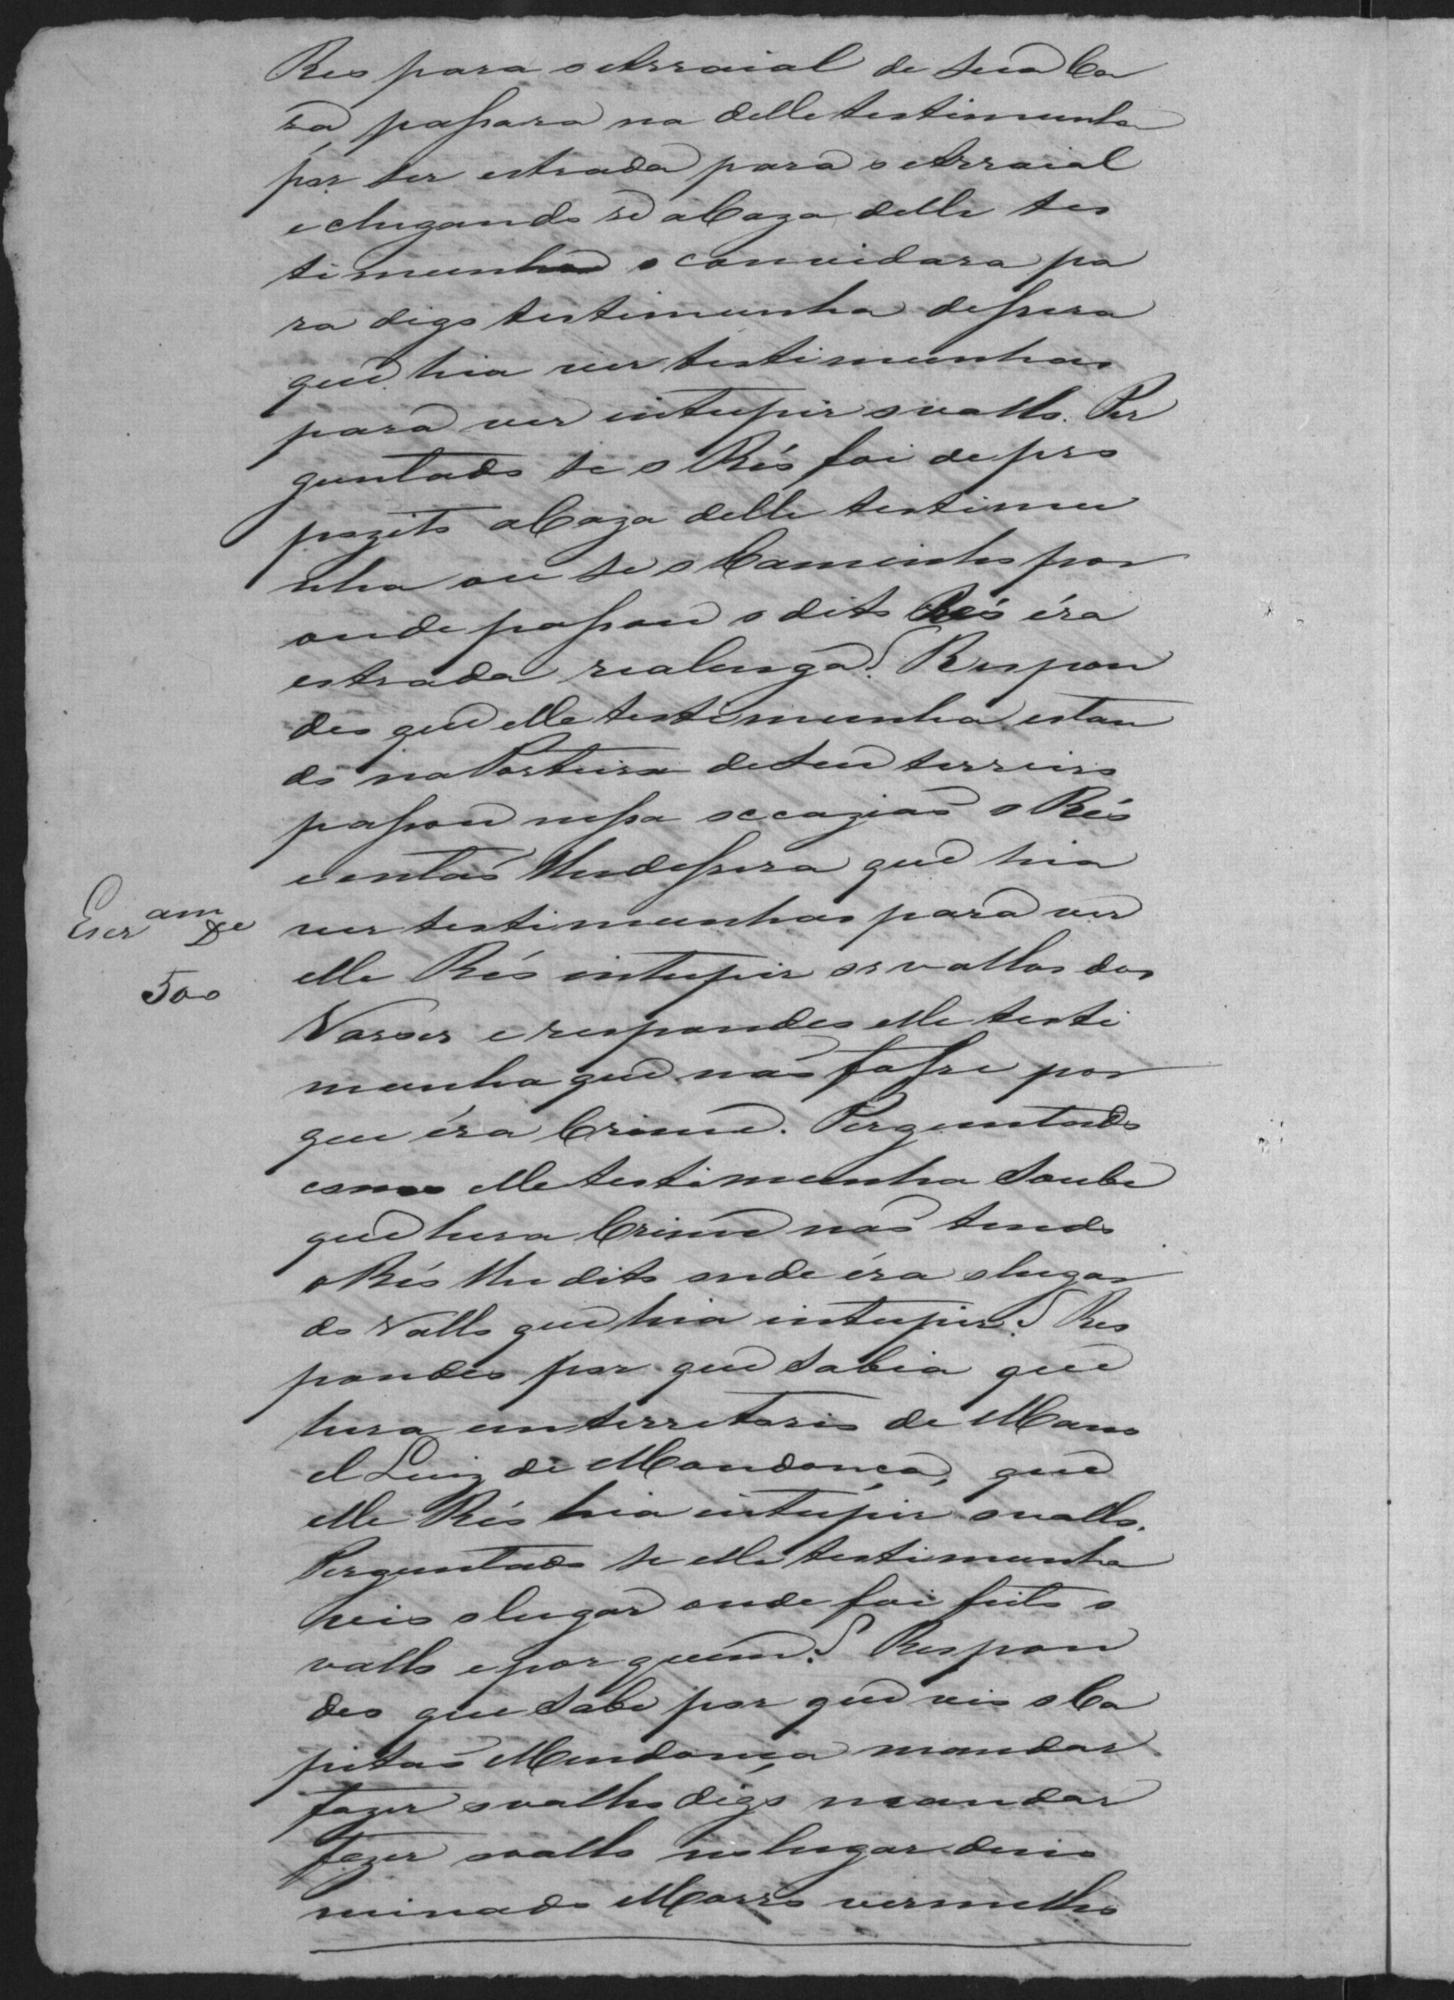 Reo para o Arraial de sua Ca
sa passara na delle testimunha
por ser estrada para o Arraial
e chegando se a Caza delle tes
timunha o convidara pa
ra digo testimunha dissera
que hia ver testimunhas
para ver intupir o vallo. Per
guntado se o Réo foi de pro
pozito a Caza delle testimu
nha ou se o Caminho por
onde passou o dito Réo éra
estrada realenga? Respon
deo que elle testimunha estan
do na Porteira de seu terreiro
passou nessa occazião o Réo
e então lhe dissera que hia
ver testimunhas para ver
elle Réo intupir os vallos dos
e respondeo elle testi
munha que não fosse por
que éra Crime. Perguntado
como elle testimunha Soube
que hera Crime não tendo
o Réo lhe dito onde éra o lugar
do Vallo que hia intupir? Res
pondeo por que Sabia que
hera em terretorio de Mano
el Luiz de Mendonça, que
elle Réo hia intupir o vallo.
Perguntado se elle testimunha
vio o lugar onde foi feito o
vallo e por quem? Respon
deo que Sabe por que vio o Ca
pitão Mendonça mandar
fazer o vallo digo mandar
fazer o vallo no lugar deno
minado Morro vermelho
500